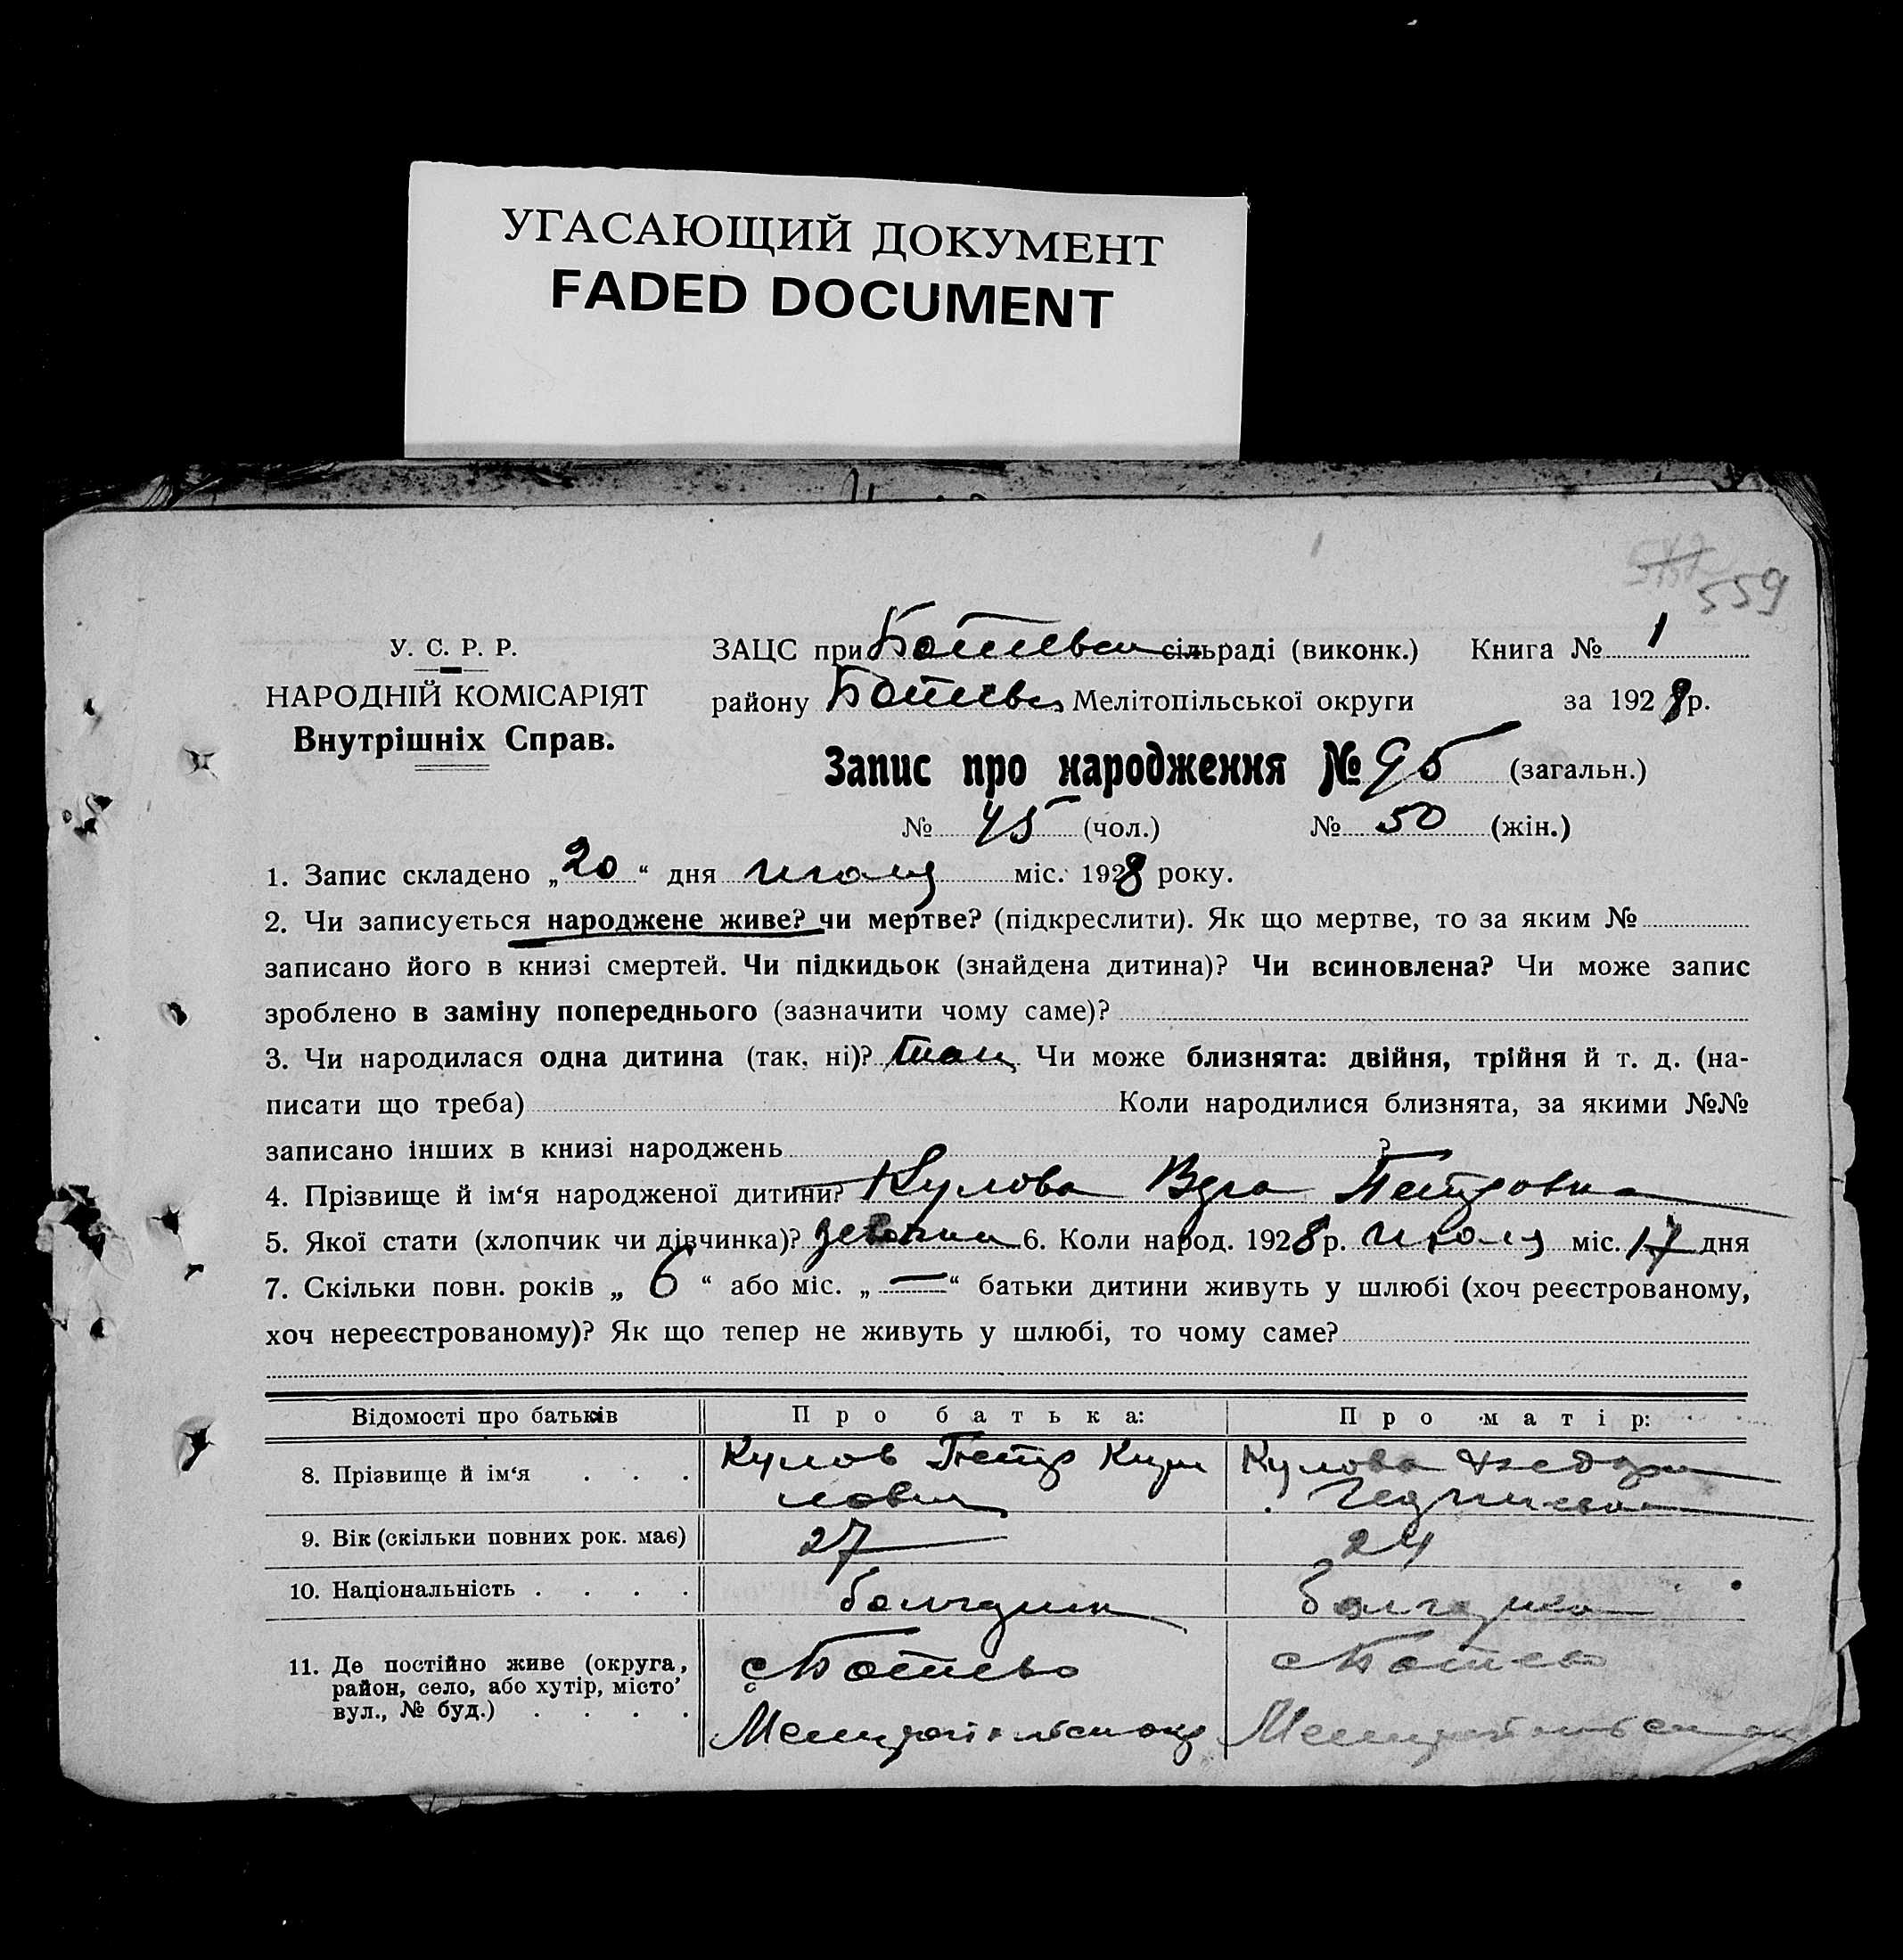 УГАСАЮЩИЙ ДОКУМЕНТ
FADED DOCUMENT
559
У. С. Р. Р.
НАРОДНІЙ КОМІСАРІЯТ
Внутрішніх Справ.
ЗАЦС при сільраді (виконк.) Книга № 1
району Мелітопільської округи за 1928 р.
Запис про народження № 95 (загальн.)
№ 45 (чол.) № 50 (жін.)
1. Запис складено „20“ дня июля міс. 1928 року.
2. Чи записується народжене живе? чи мертве? (підкреслити). Як що мертве, то за яким №
записано його в книзі смертей. Чи підкидьок (знайдена дитина)? Чи всиновлена? Чи може запис
зроблено в заміну попереднього (зазначити чому саме)?
3. Чи народилася одна дитина (так, ні)? так Чи може близнята: двійня, трійня й т. д. (на-
писати що треба) Коли народилися близнята, за якими №№
записано інших в книзі народжень ?
4. Прізвище й ім‘я народженої дитини? Кулова Петровна
5. Якої стати (хлопчик чи дівчинка)? 6. Коли народ. 1928 р. июля міс. 17 дня
7. Скільки повн. років „ 6 “ або міс. „ — “ батьки дитини живуть у шлюбі (хоч реєстрованому,
хоч нереєстрованому)? Як що тепер не живуть у шлюбі, то чому саме?
Відомості про батьків Про батька: Про матір:
8. Прізвище й ім‘я . . . Кулов Петр Кири Кулова
лович
9. Вік (скільки повних рок. має) 27 24
10. Національність . . . . болгарин болгарка
11. Де постійно живе (округа,
район, село, або хутір, місто
вул., № буд.) . . . .
с Ботиево с Ботиево